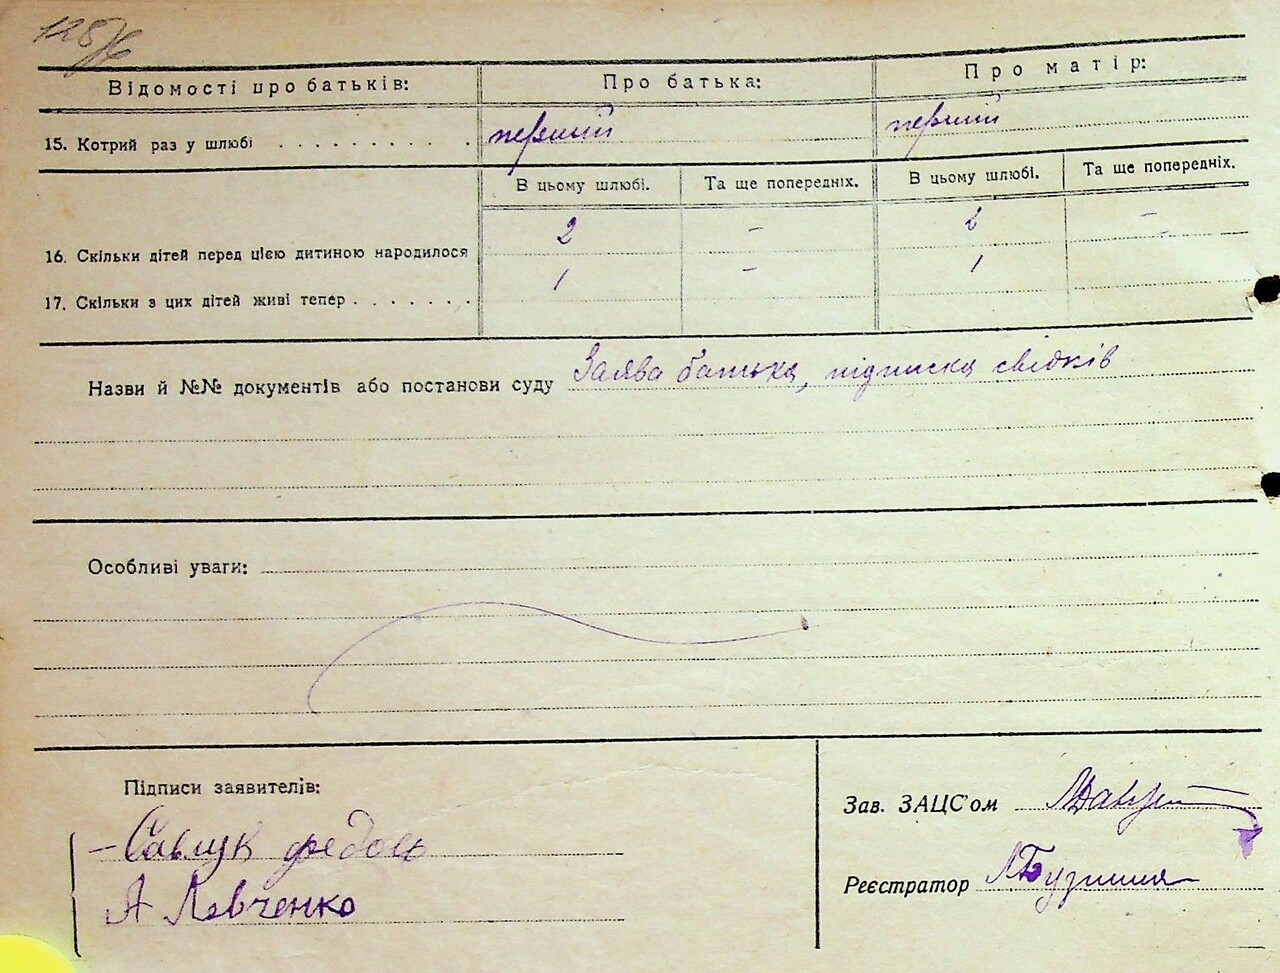 Відомості про батьків: Про батька: Про матір:
15. Котрий раз у шлюбі перший перший
В цьому шлюбі. Та ще попередніх. В цьому шлюбі. Та ще попередніх.
16. Скільки дітей перед цією дитиною народилося 2 – 2 –
17. Скільки з цих дітей живі тепер 1 – 1
Назви й №№ документів або постанови суду Заява батька, підписка свідків
Особливі уваги:
Підписи заявителів:
– Савлук
А Левченко
Зав. ЗАЦС'ом
Реєстратор